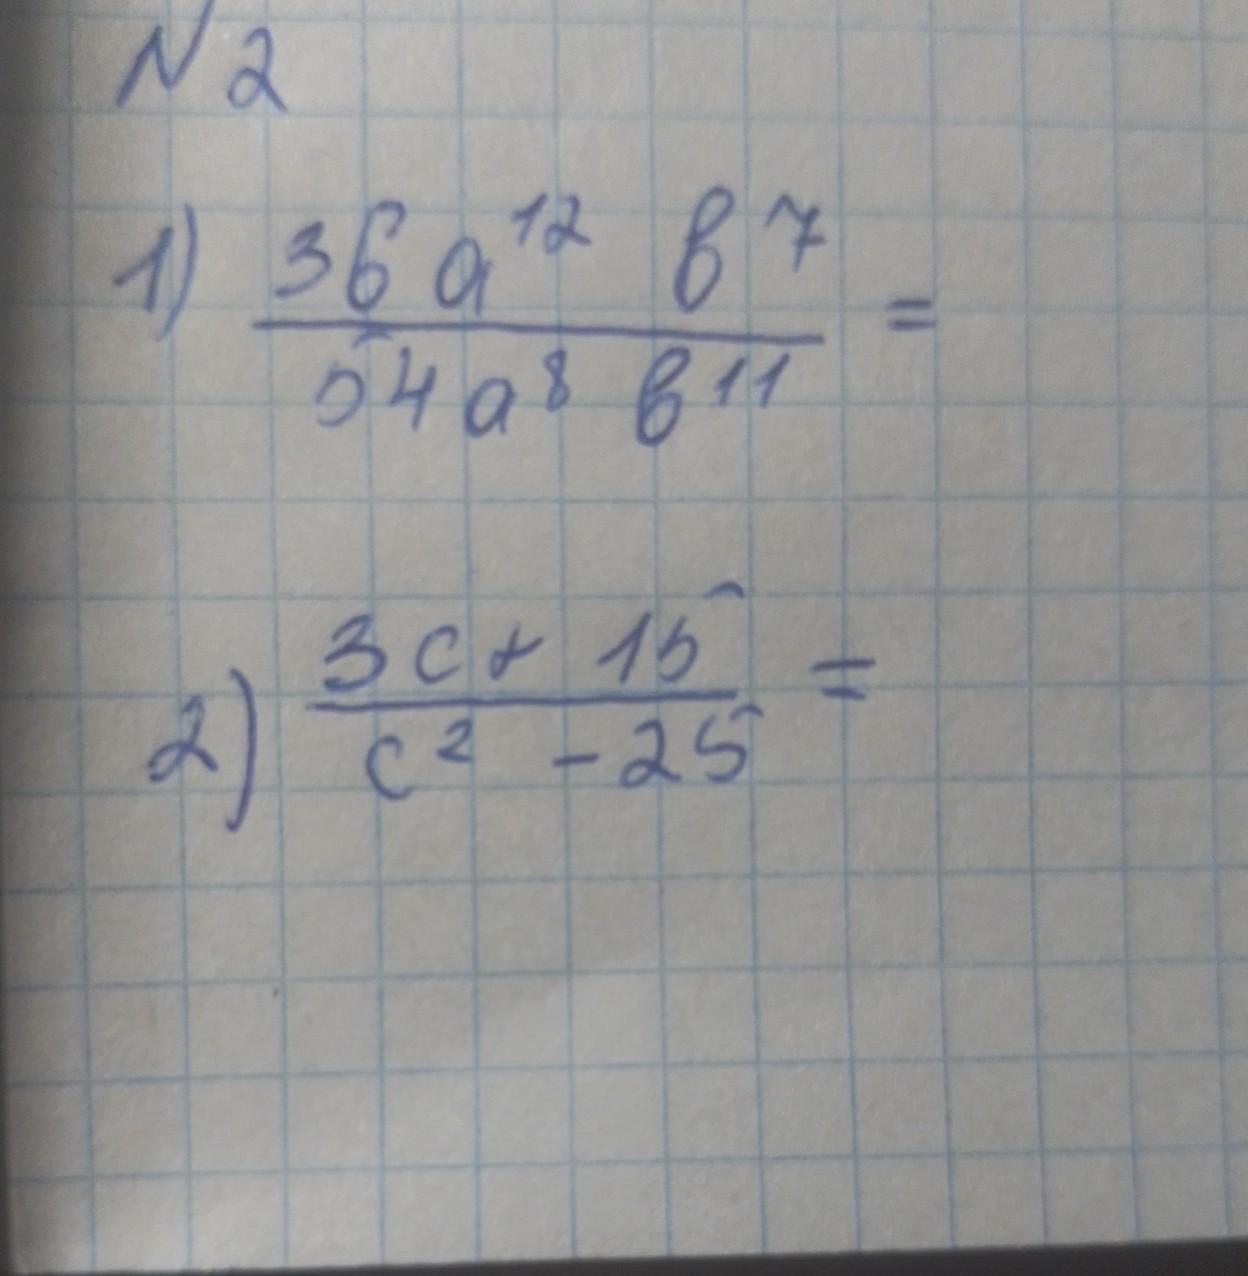 N 2
1) 36 a¹² b⁷ =
54 a⁸ b¹¹
2) 3c + 15 =
c² - 25